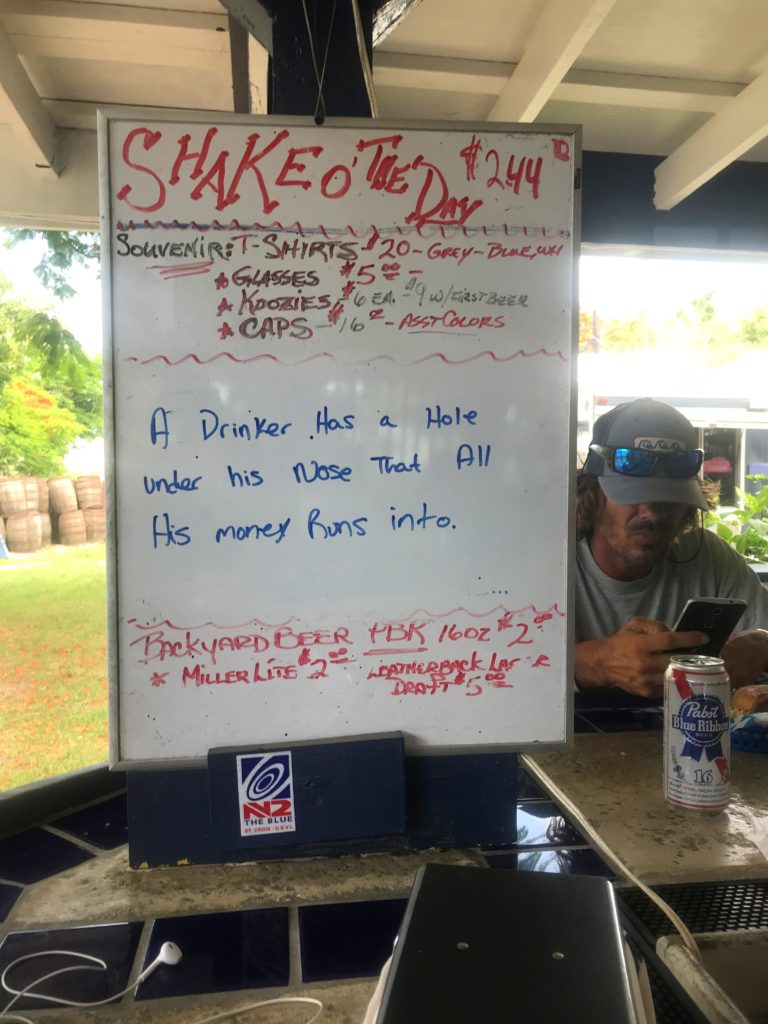 SHAKE O' THE' DAY $244
SOUVENIR: T-SHIRTS $20 - GREY - BLUE, WH
* GLASSES $5.00 -
* KOOZIES - $6 EA. - $9 W/FIRST BEER
* CAPS - $16 - ASST COLORS
A Drinker Has a Hole
under his Nose That All
His money Runs into.
BACKYARD BEER PBR 16OZ $2.00
* MILLER LITE $2.00 LEATHERBACK
DRAFT $5.00
N2
THE BLUE
ST. CROIX - U.S.V.I.
Pabst
Blue Ribbon
BEER
16